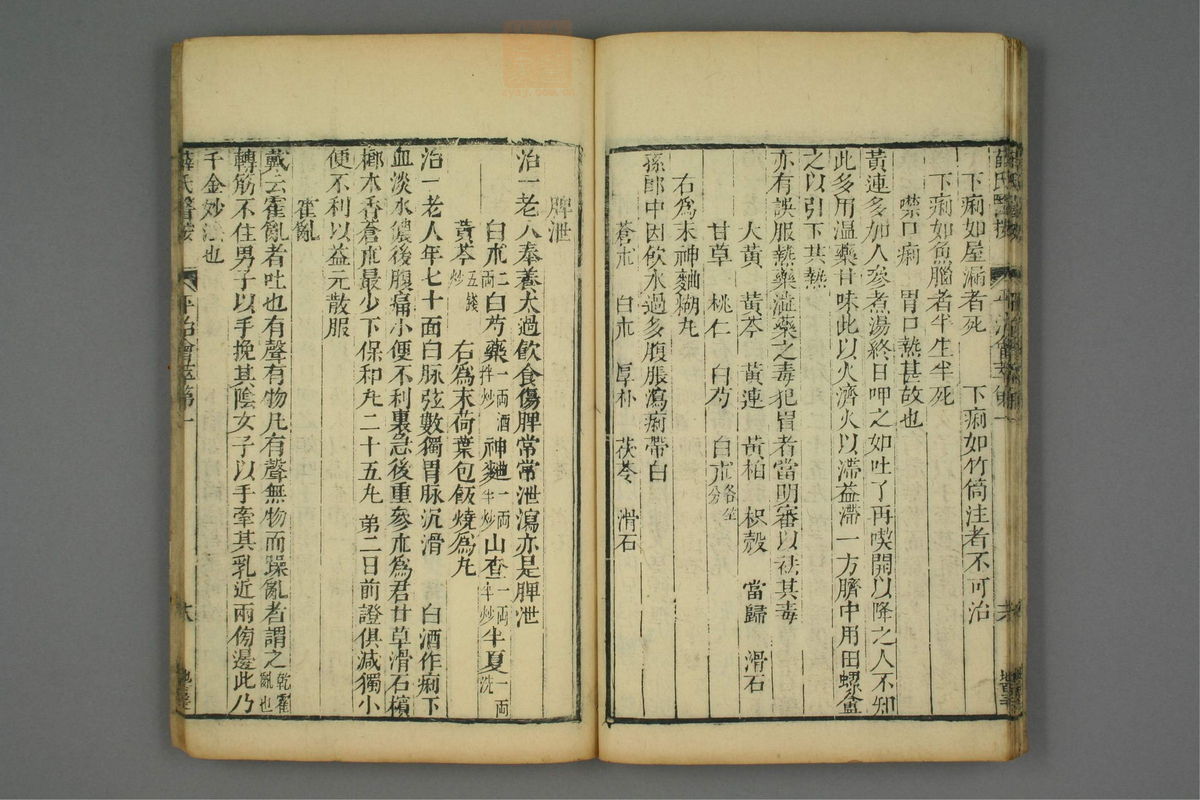 下痢如屋漏者死　下痢如竹筒注者不可治
下痢如魚腦者半生半死
噤口痢　胃口熱甚故也
黃連多加人參煮湯終日呷之如吐了再喫開以降之人不知
此多用溫藥甘味此以火濟火以滯益滯一方臍中用田螺盦
之以引下其熱
亦有誤服熱藥澁藥之毒犯胃者當明審以祛其毒
大黃　黃芩　黃連　黃柏　枳殼　當歸　滑石
甘草　桃仁　白芍　白朮各等分
右為末神麯糊丸
孫郎中因飲水過多腹脹瀉痢帶白
蒼朮　白朮　厚朴　茯苓　滑石
脾泄
治一老人奉養太過飲食傷脾常常泄瀉亦是脾泄
白朮二兩白芍藥一兩酒拌炒神麯一兩半炒山查一兩半炒半夏一兩洗
黃芩五錢炒　右為末荷葉包飯燒為丸
治一老人年七十面白脉弦數獨胃脉沉滑　白酒作痢下
血淡水膿後腹痛小便不利裏急後重參朮為君甘草滑石檳
榔木香蒼朮最少下保和丸二十五丸　第二日前證俱減獨小
便不利以益元散服
霍亂
戴云霍亂者吐也有聲有物凡有聲無物而躁亂者謂之乾霍亂也
轉筋不住男子以手挽其陰女子以手牽其乳近兩傍邊此乃
千金妙法也
薛氏醫按　平治會萃第一